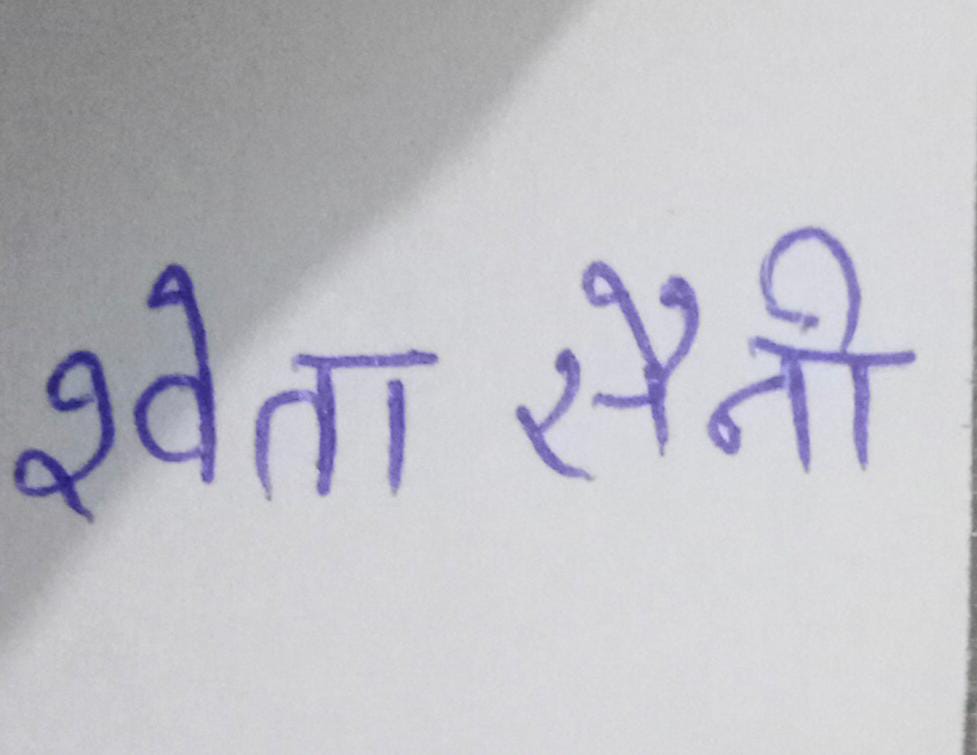 श्वेता सैनी